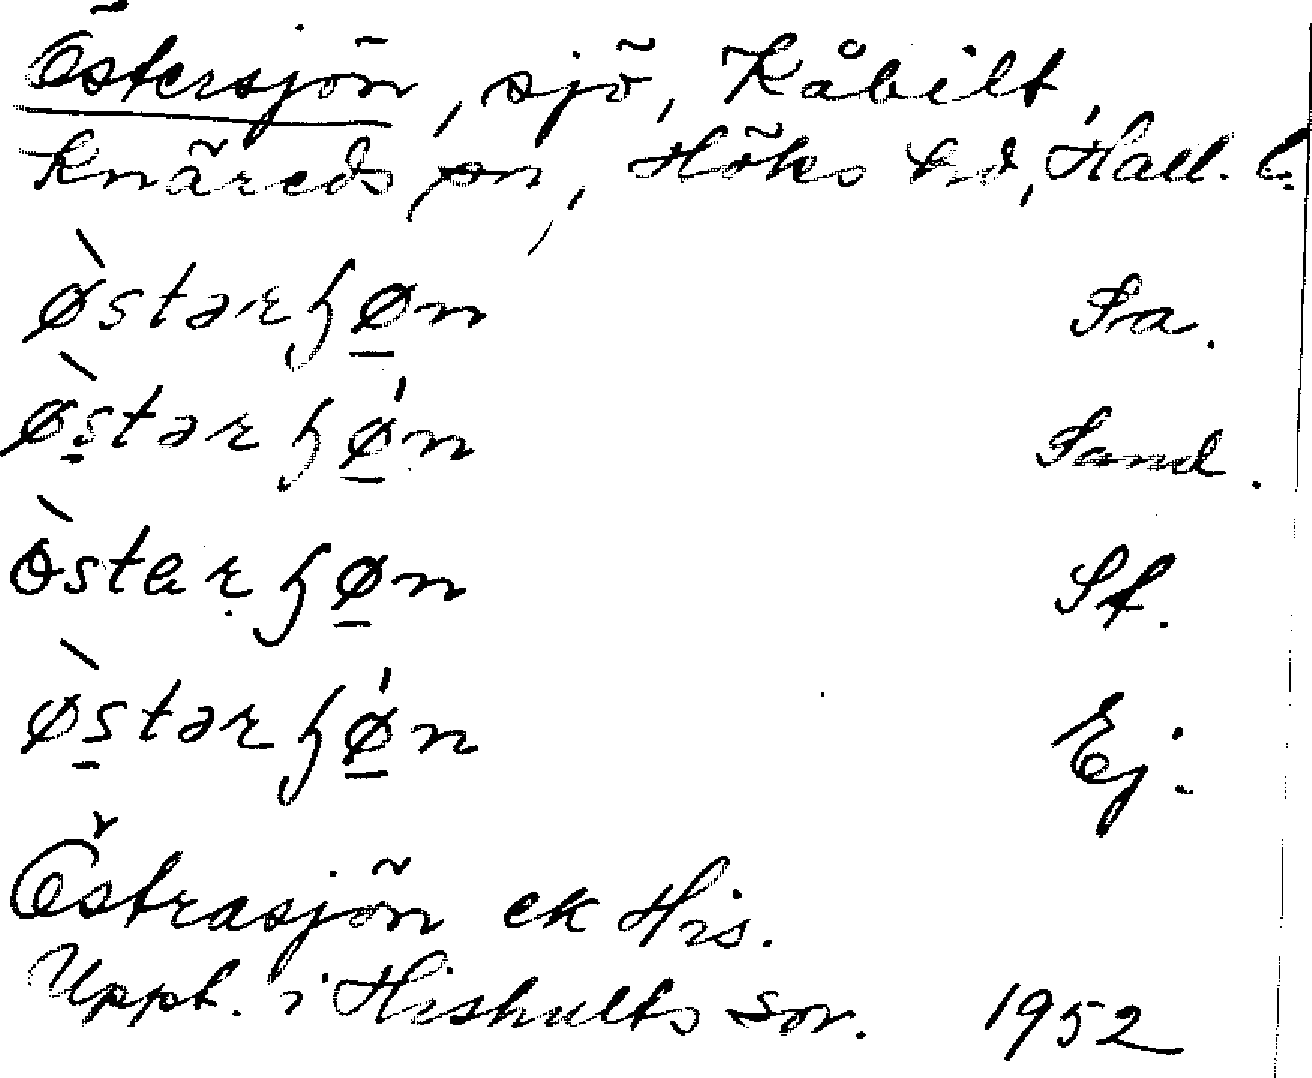 Östersjön, sjö, Kåbilt,
Knäreds sn, Höks hd, Hall. l.
ø̀stərɧø̠n Sa.
ø̀s̠tərɧǿ̠n Sand.
ò̀starɧø̠n St.
ø̀s̠tərɧǿ̠n Ej.
Östrasjön ek His.
Uppt. i Hishults sn. 1952